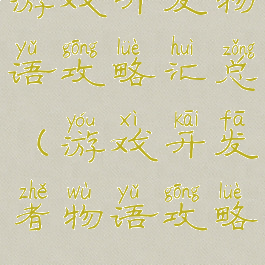 游戏开发物
yǔ gōng luè huì zǒng
语攻略汇总
yóu xì kāi fā
（游戏开发
zhě wù yǔ gōng luè
者物语攻略